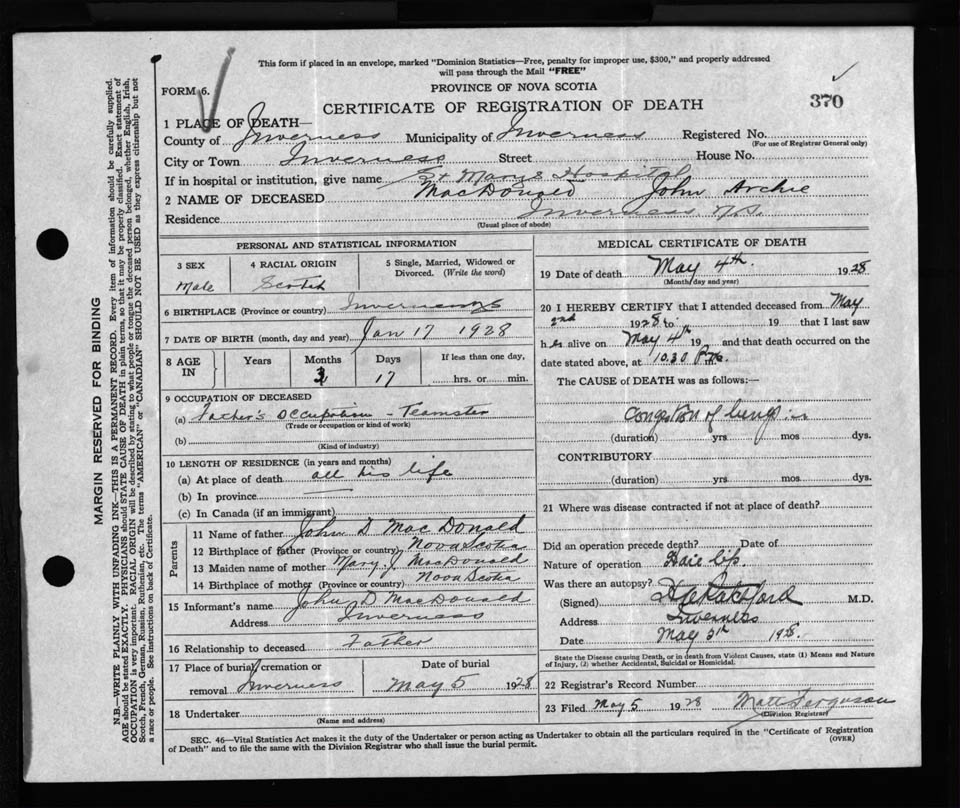 This form if placed in an envelope, marked "Dominion Statistics—Free, penalty for improper use, $300," and properly addressed
will pass through the Mail "FREE"
FORM 6.
PROVINCE OF NOVA SCOTIA
370
CERTIFICATE OF REGISTRATION OF DEATH
1 PLACE OF DEATH—
County of Inverness Municipality of Inverness Registered No.
(For use of Registrar General only)
City or Town Inverness Street House No.
If in hospital or institution, give name St Marys Hospital
2 NAME OF DECEASED MacDonald John Archie
Residence Inverness N.S.
(Usual place of abode)
PERSONAL AND STATISTICAL INFORMATION
3 SEX 4 RACIAL ORIGIN 5 Single, Married, Widowed or
Divorced. (Write the word)
Male Scotch
6 BIRTHPLACE (Province or country) Inverness
7 DATE OF BIRTH (month, day and year) Jan 17 1928
8 AGE IN Years Months Days If less than one day,
3 17 hrs. or min.
9 OCCUPATION OF DECEASED
(a) Father's occupation - Teamster
(Trade or occupation or kind of work)
(b)
(Kind of industry)
10 LENGTH OF RESIDENCE (in years and months)
(a) At place of death all his life
(b) In province
(c) In Canada (if an immigrant)
Parents
11 Name of father John D MacDonald
12 Birthplace of father (Province or country) Nova Scotia
13 Maiden name of mother Mary J. MacDonald
14 Birthplace of mother (Province or country) Nova Scotia
15 Informant's name John D MacDonald
Address Inverness
16 Relationship to deceased Father
17 Place of burial, cremation or Date of burial
removal Inverness May 5 1928
18 Undertaker
(Name and address)
MEDICAL CERTIFICATE OF DEATH
19 Date of death May 4th. 1928
(Month, day and year)
20 I HEREBY CERTIFY that I attended deceased from May
2nd 1928 to 19 that I last saw
h alive on May 4th 19 and that death occurred on the
date stated above, at 10.30 P.M.
The CAUSE OF DEATH was as follows:—
Congestion of lungs
(duration) yrs mos dys.
CONTRIBUTORY
(duration) yrs mos dys.
21 Where was disease contracted if not at place of death?
Did an operation precede death? Date of
Nature of operation Hare lip.
Was there an autopsy?
(Signed) M.D.
Address Inverness
Date May 5th 1928.
State the Disease causing Death, or in death from Violent Causes, state (1) Means and Nature
of Injury, (2) whether Accidental, Suicidal or Homicidal.
22 Registrar's Record Number
23 Filed May 5 1928 Matt Ferguson
(Division Registrar)
SEC. 46—Vital Statistics Act makes it the duty of the Undertaker or person acting as Undertaker to obtain all the particulars required in the "Certificate of Registration
of Death" and to file the same with the Division Registrar who shall issue the burial permit.
(OVER)
MARGIN RESERVED FOR BINDING
N.B.—WRITE PLAINLY WITH UNFADING INK—THIS IS A PERMANENT RECORD. Every item of information should be carefully supplied.
AGE should be stated EXACTLY. PHYSICIANS should STATE CAUSE OF DEATH in plain terms, so that it may be properly classified. Exact statement of
OCCUPATION is very important. RACIAL ORIGIN will be described by stating to what people or tongue the deceased person belonged, whether English, Irish,
Scotch, French, German, Russian, Ruthenian, etc. The terms "AMERICAN" or "CANADIAN" SHOULD NOT BE USED as they express citizenship but not
a race or people. See instructions on back of Certificate.